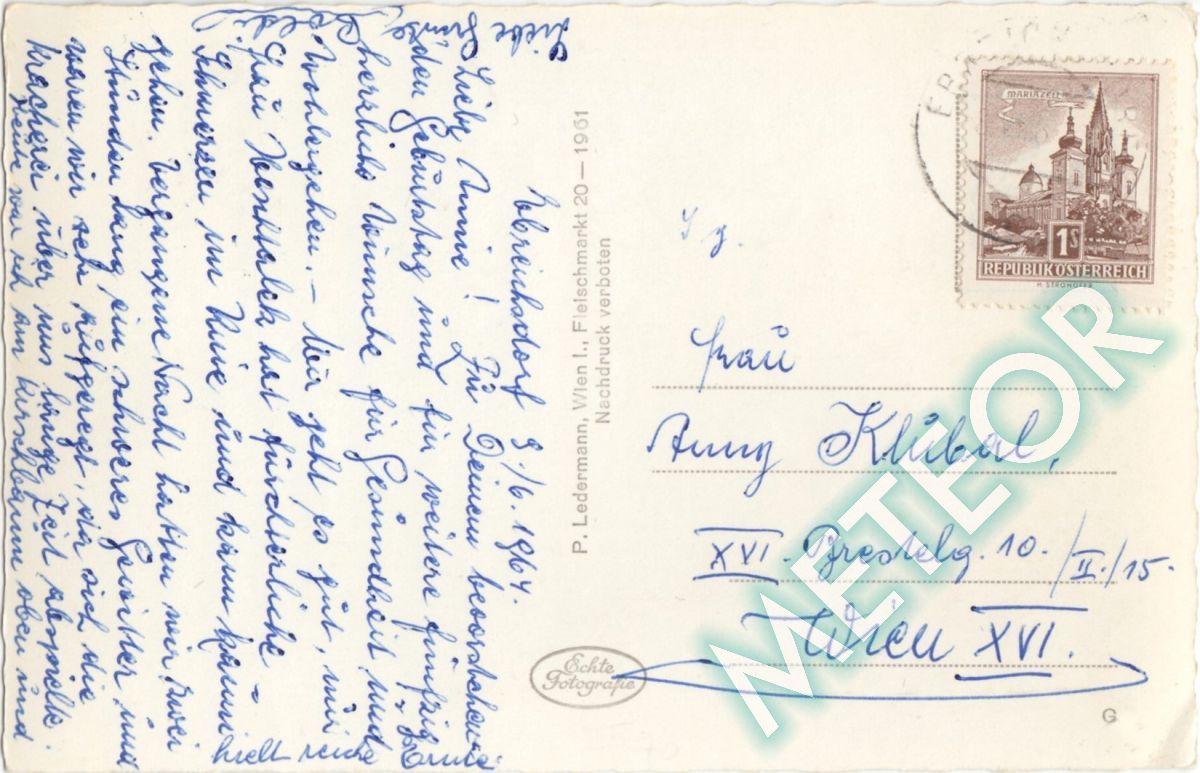 Ebreichsdorf 9./6. 1964.
Liebe Annie! Zu Deinem bevorstehen-
den Geburtstag und für weitere fünfzig
herrliche Wünsche für Gesundheit und
Wohlergehen. – Mir geht es gut, nur
Frau hat fürchterliche
Schmerzen im Knie und kann kaum
gehen. Vergangene Nacht hatten wir zwei
Stunden lang ein schweres Gewitter und
waren wir sehr aufgeregt, da sich die
Kracherei über uns lange Zeit abspielte.
Heute war ich am Kirschbaum oben und
hielt reiche
Ernte.
Liebe Grüße
P. Ledermann, Wien I., Fleischmarkt 20—1961
Nachdruck verboten
Echte
Fotografie
MARIAZELL
1S
REPUBLIK ÖSTERREICH
H. STROHOFER
Frau
Anny Klubal,
XVI. Brestelg. 10./II./15.
Wien XVI.
G
METEOR